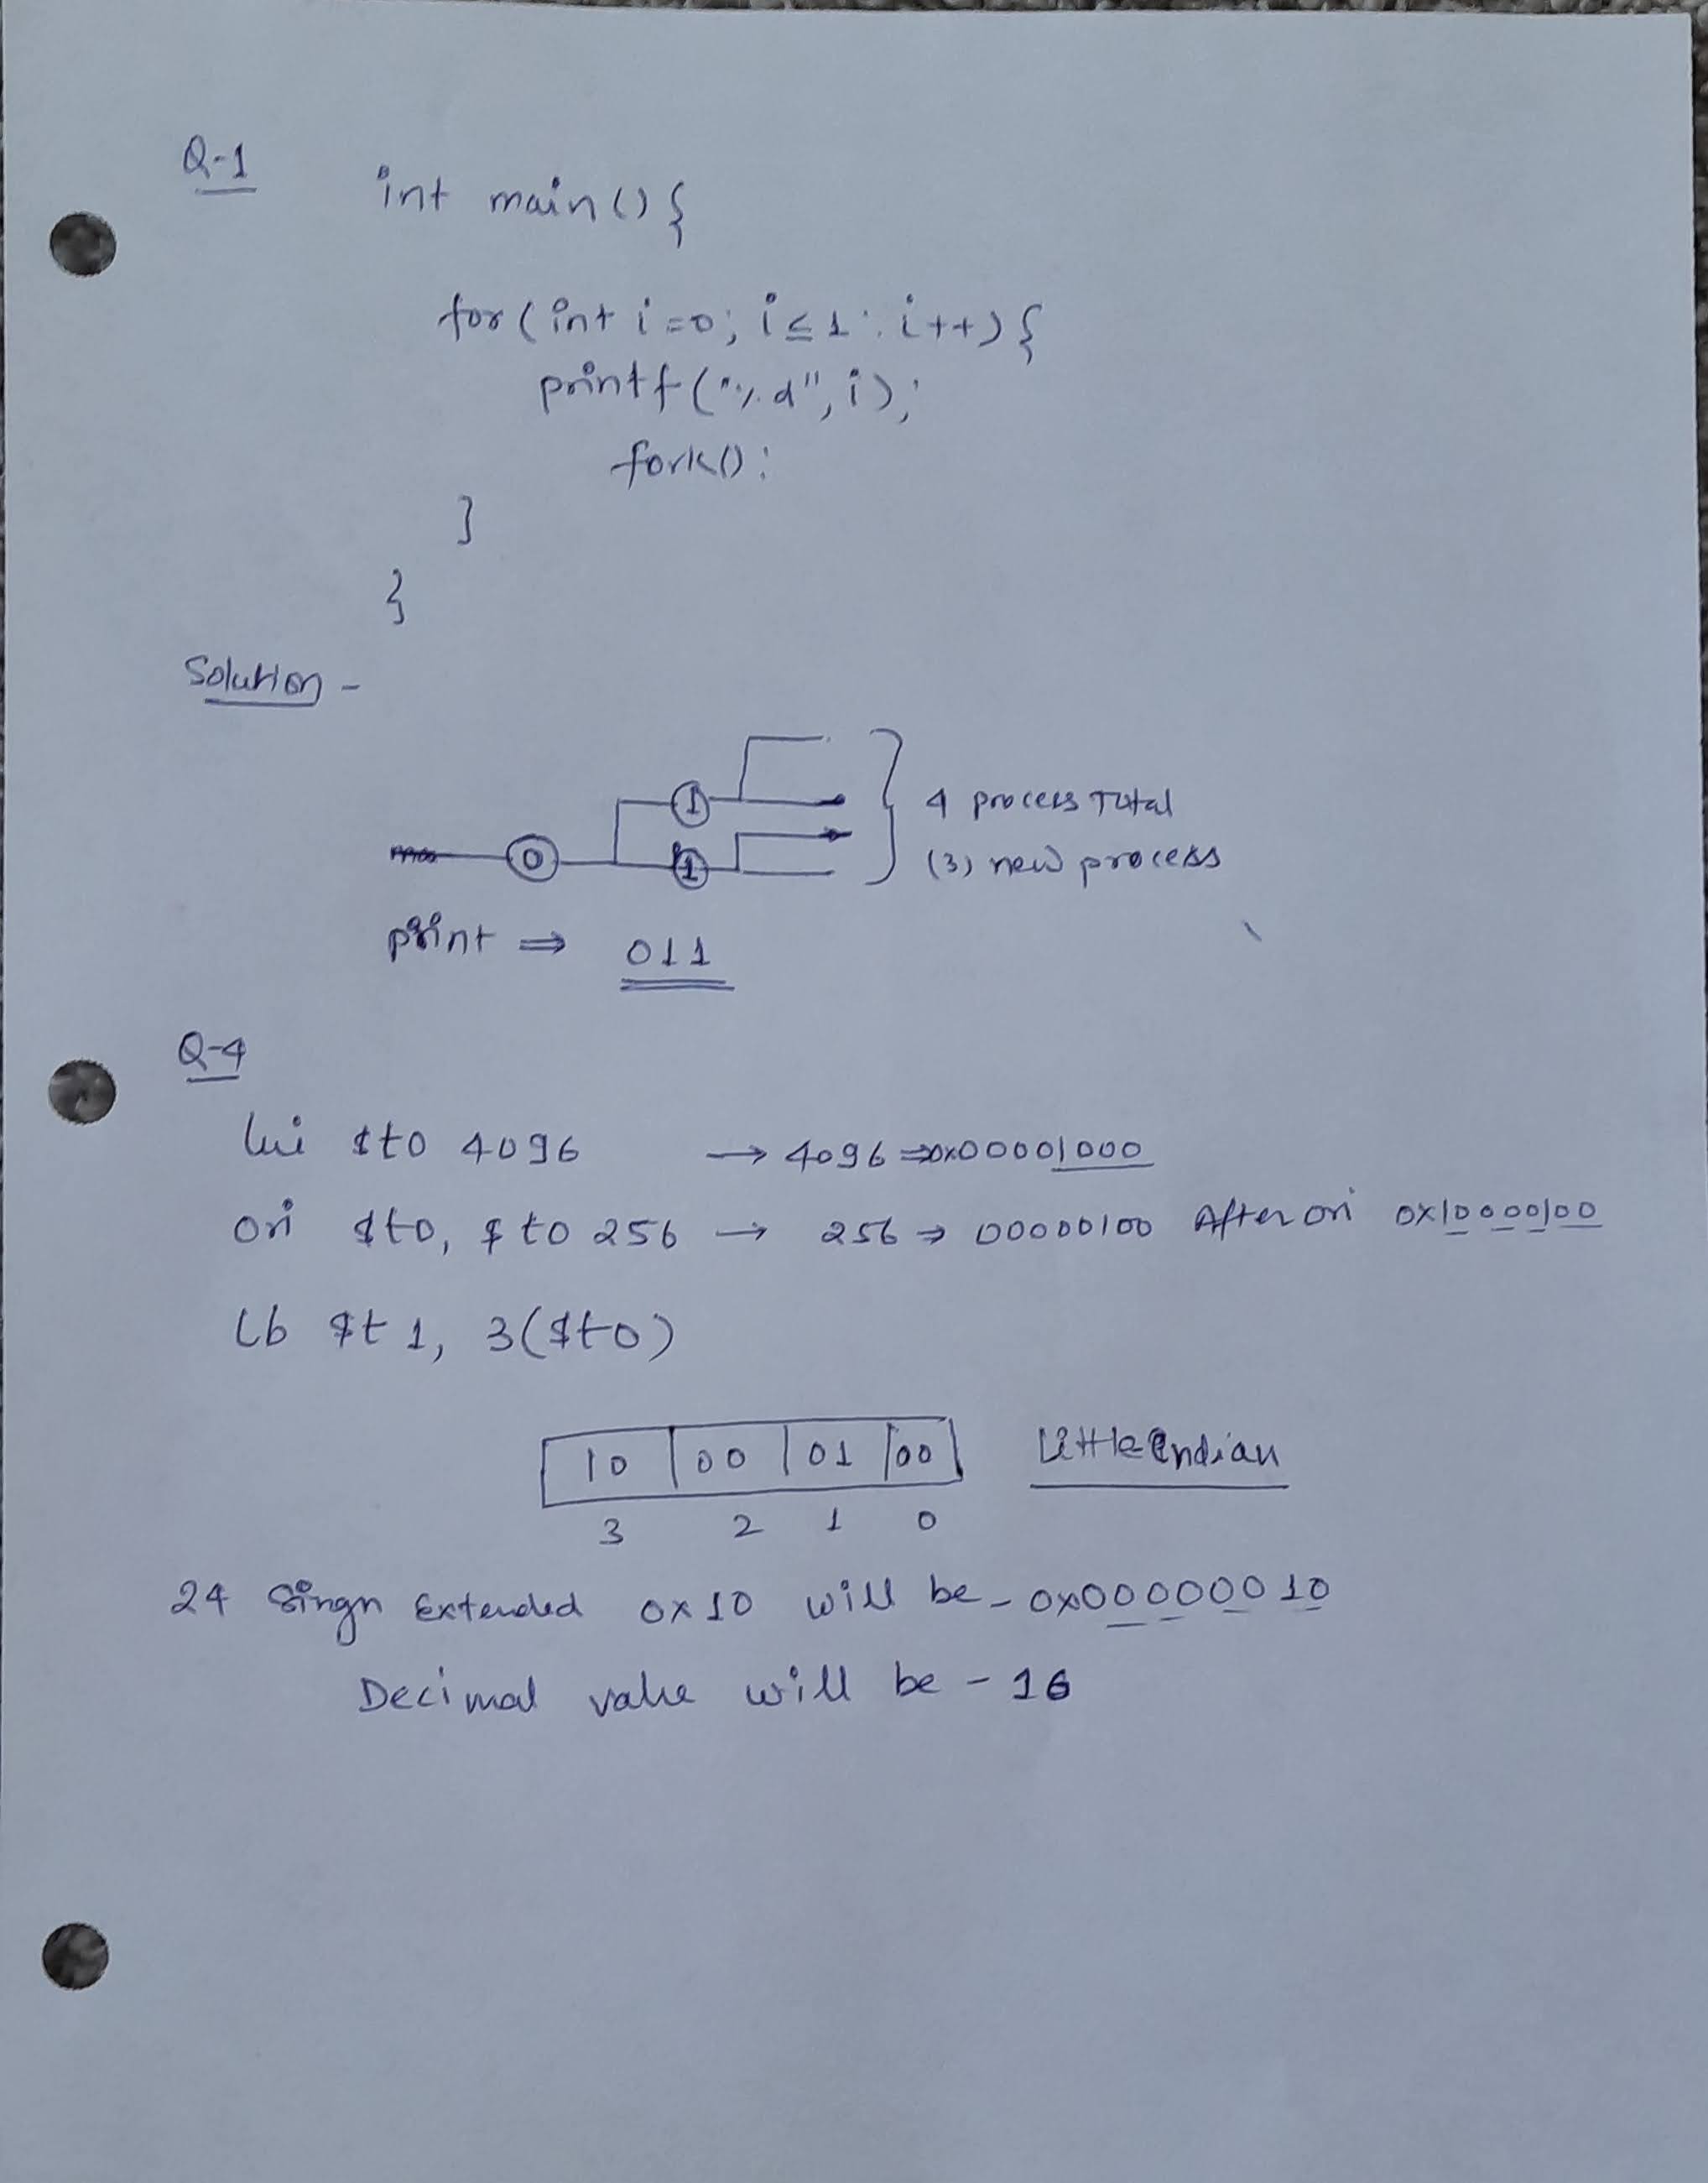 Q-1
int main() {
for (int i=0; i≤1; i++) {
printf("%d", i);
fork();
}
}
Solution -
1
0
1
4 process Total
(3) new process
print ⇒ 011
Q-4
lui $t0 4096 → 4096 ⇒ 0x00001000
ori $t0, $t0 256 → 256 → 00000100 After ori 0x10000100
lb $t1, 3($t0)
10 00 01 00 Little Endian
3 2 1 0
24 Singn Extended 0x10 will be - 0x00000010
Decimal value will be - 16